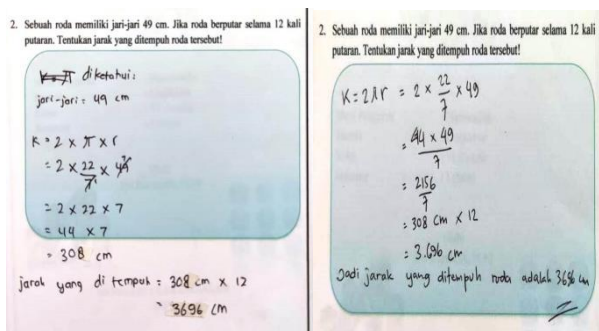 2. Sebuah roda memiliki jari-jari 49 cm. Jika roda berputar selama 12 kali
putaran. Tentukan jarak yang ditempuh roda tersebut!
diketahui:
jari-jari = 49 cm
K = 2 × π × r
= 2 × 22/7 × 49
= 2 × 22 × 7
= 44 × 7
= 308 cm
jarak yang di tempuh = 308 cm × 12
= 3696 cm
2. Sebuah roda memiliki jari-jari 49 cm. Jika roda berputar selama 12 kali
putaran. Tentukan jarak yang ditempuh roda tersebut!
K = 2πr = 2 × 22/7 × 49
= 44 × 49/7
= 2156/7
= 308 cm × 12
= 3.696 cm
Jadi jarak yang ditempuh roda adalah 3696 cm